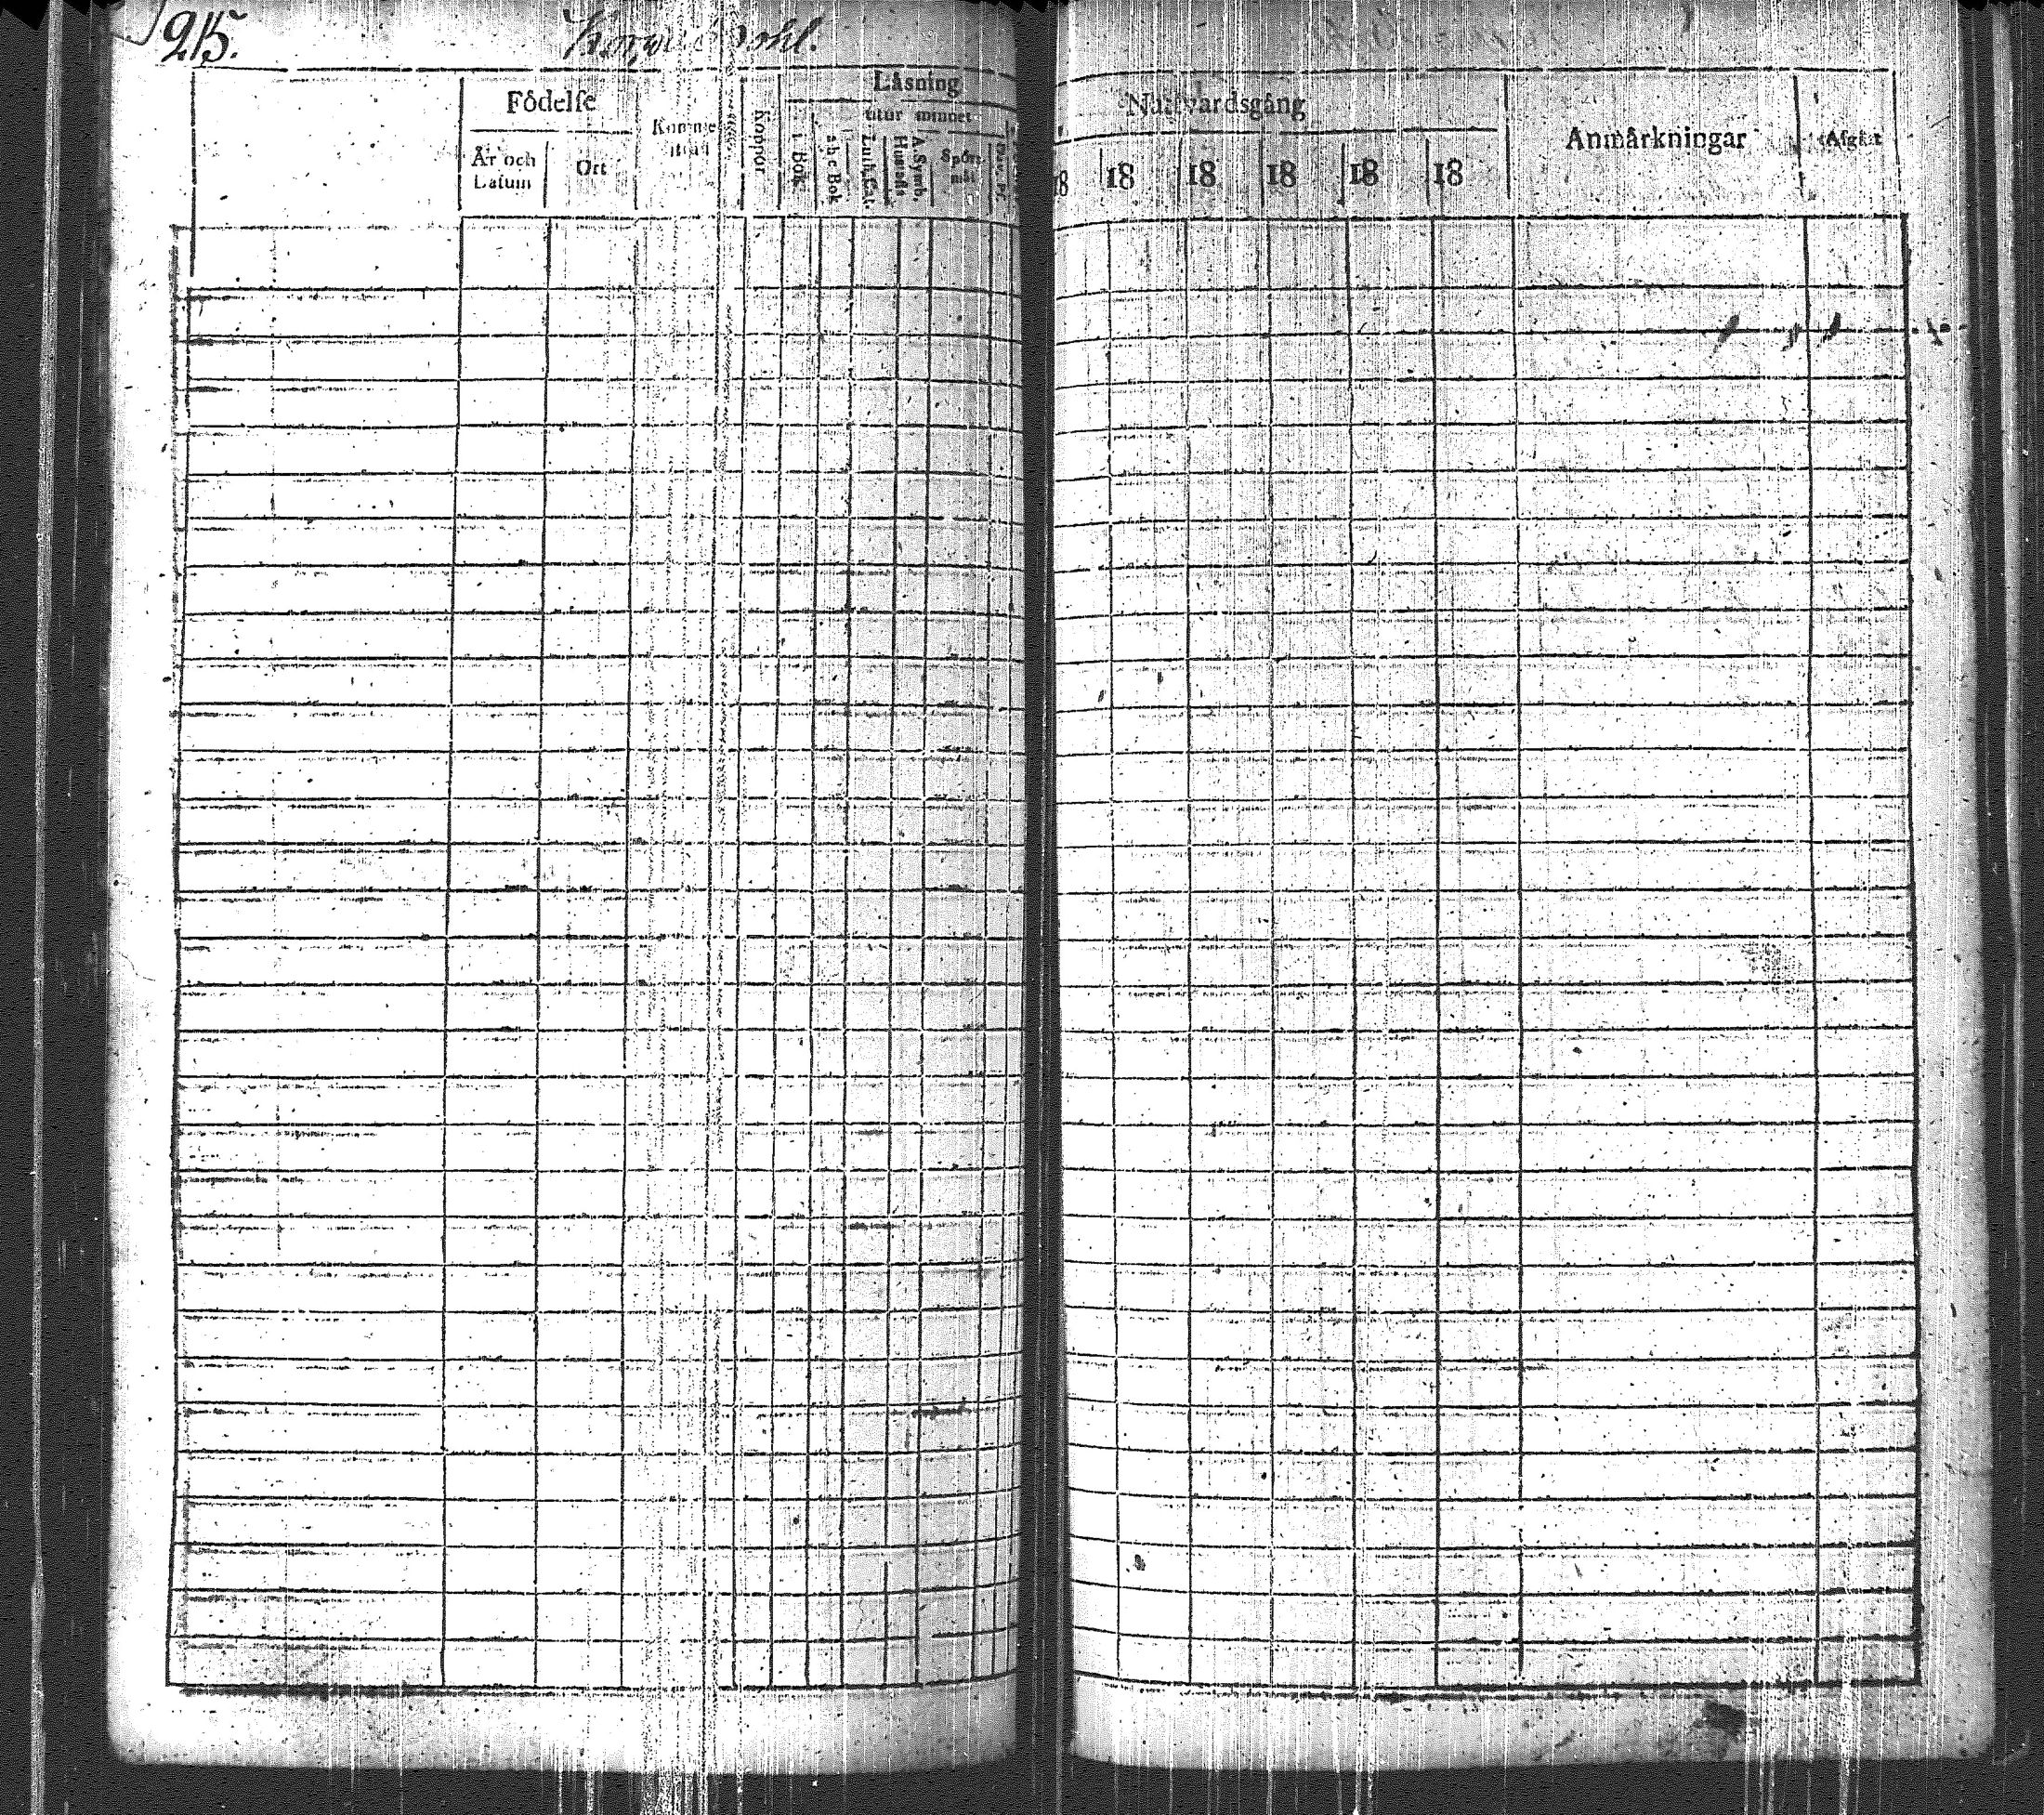 215.
Födelse
År och
Datum
Ort
Koppor
Läsning
utur minnet
i Bok.
a b c Bok
Luth. Cat.
Hustafla
A. Symb.
Spörs-
mål
Nattvardsgång
18 18 18 18 18 18
Anmärkningar
Afgått